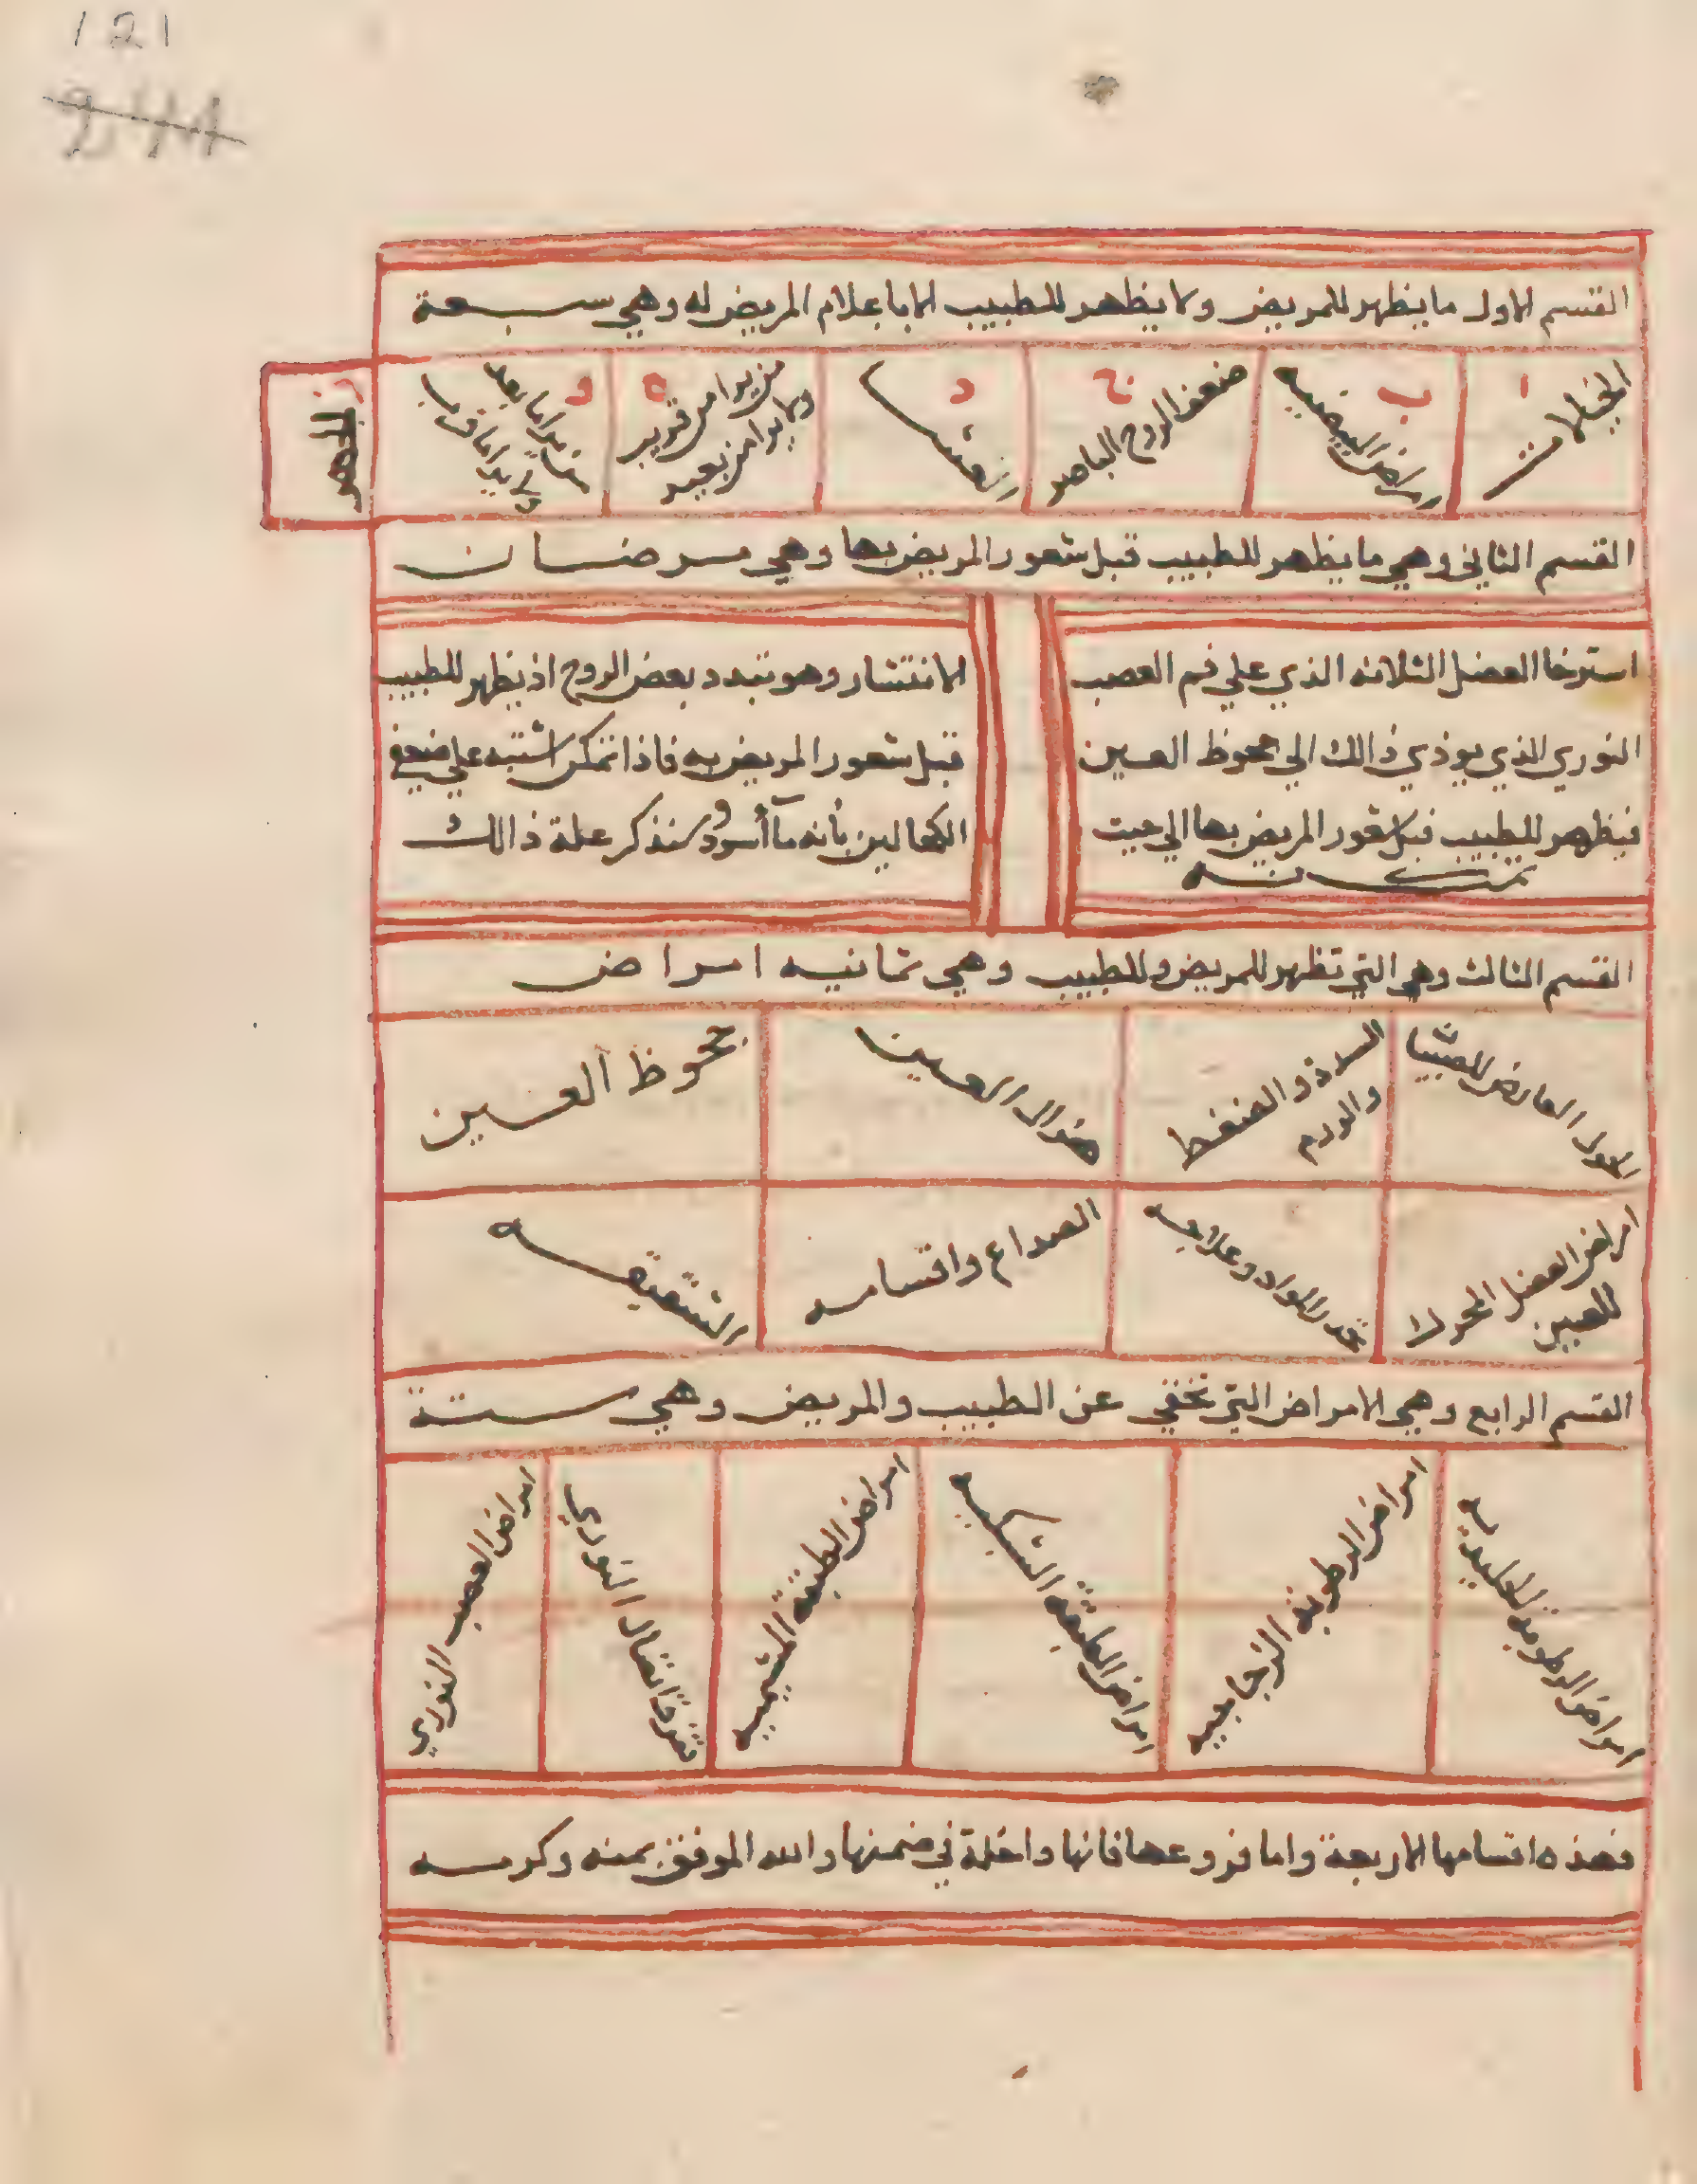 121
244
القسم الاول ما يظهر للمريض ولا يظهر للطبيب الا باعلام المريض له وهي سبعة
ا
الخيالات
ب
امراض البيضيه
ج
ضعف الروح الباصر
د
العشا
ه
من يرا من قريب
ولا يرا من بعيد
و
من يرا ما بعد
ولا يرا ما قرب
ز
الجهر
القسم الثاني وهي ما يظهر للطبيب قبل شعور المريض بها وهي مرضان
استرخا العضل الثلاثه الذي علي فم العصب
النوري الذي يوذي ذالك الي جحوظ العين
فيظهر للطبيب قبل شعور المريض بها الي حيت
تمكنه
الانتشار وهو تبدد بعض الروح اذ يظهر للطبيب
قبل شعور المريض به فاذا تمكن اشتبه علي ضعفي
الكحالين بأنه مآ أسود وسنذكر علة ذالك
القسم الثالث وهي التي تظهر للمريض وللطبيب وهي ثمانيه امراض
الحول العارض للصبيا
السدة والضغط
والورم
هزال العين
جحوظ العين
امراض العضل المحرك
للعين
تحدر المواد وعلاجه
الصداع واقسامه
الشقيقه
القسم الرابع وهي الامراض التي تخفي عن الطبيب والمريض وهي ستة
امراض الرطوبة الجليديه
امراض الرطوبة الزجاجيه
امراض الطبقه الشبكيه
امراض الطبقة المشيميه
تفرق اتصال النوري
امراض العصب النوري
فهذه اقسامها الاربعة واما فروعها فانها داخلة في ضمنها والله الموفق بمنه وكرمه